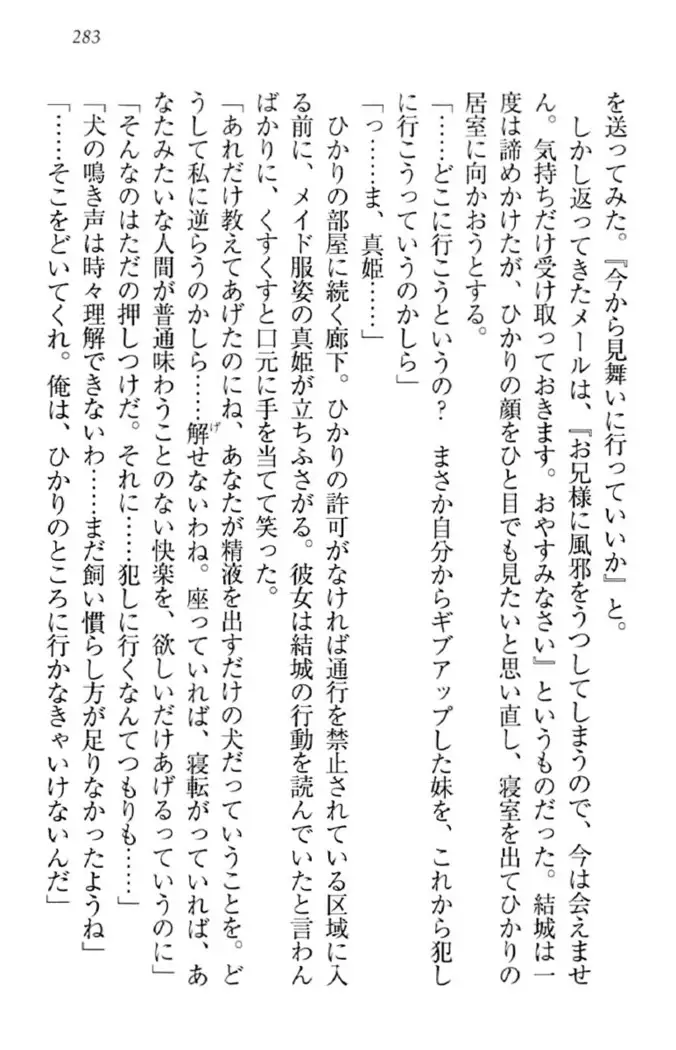 283
を送ってみた。『今から見舞いに行っていいか』と。
しかし返ってきたメールは、『お兄様に風邪をうつしてしまうので、今は会えませ
ん。気持ちだけ受け取っておきます。おやすみなさい』というものだった。結城は一
度は諦めかけたが、ひかりの顔をひと目でも見たいと思い直し、寝室を出てひかりの
居室に向かおうとする。
「……どこに行こうというの？　まさか自分からギブアップした妹を、これから犯し
に行こうっていうのかしら」
「っ……ま、真姫……」
ひかりの部屋に続く廊下。ひかりの許可がなければ通行を禁止されている区域に入
る前に、メイド服姿の真姫が立ちふさがる。彼女は結城の行動を読んでいたと言わん
ばかりに、くすくすと口元に手を当てて笑った。
「あれだけ教えてあげたのにね、あなたが精液を出すだけの犬だっていうことを。ど
うして私に逆らうのかしら……解せないわね。座っていれば、寝転がっていれば、あ
げ
なたみたいな人間が普通味わうことのない快楽を、欲しいだけあげるっていうのに」
「そんなのはただの押しつけだ。それに……犯しに行くなんてつもりも……」
「犬の鳴き声は時々理解できないわ……まだ飼い慣らし方が足りなかったようね」
「……そこをどいてくれ。俺は、ひかりのところに行かなきゃいけないんだ」